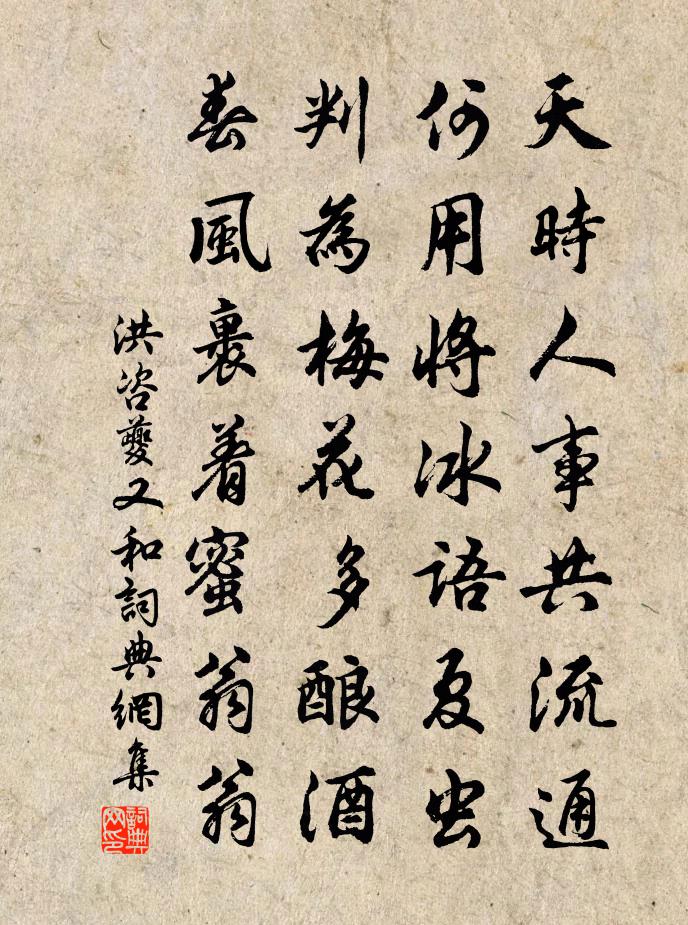 天時人事共流通
何用將冰語夏虫
判為梅花多酿酒
春風裹着蜜翁翁
洪咨夔又和詞典網集
詞典网印